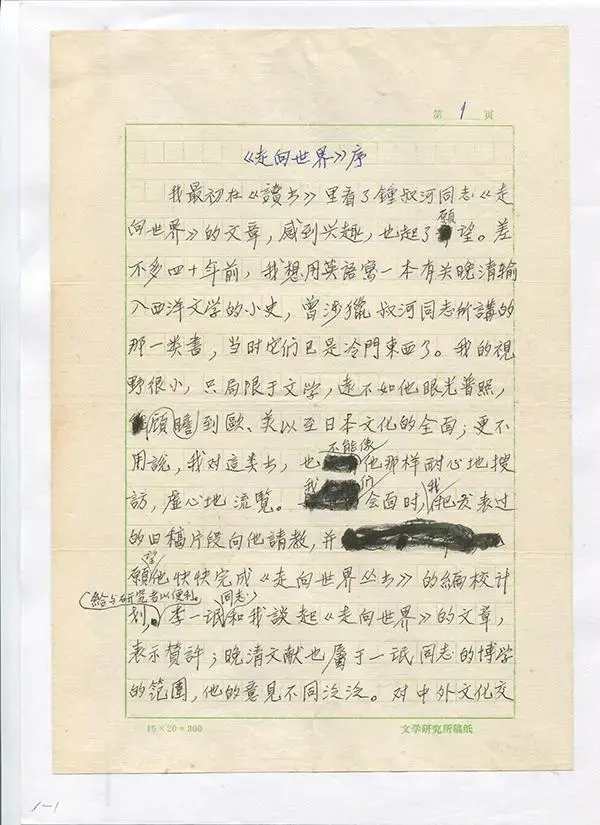 第 1 页
《走向世界》序
我最初在《讀书》里看了鍾叔河同志《走
向世界》的文章，感到兴趣，也起了願望。差
不多四十年前，我想用英語寫一本有关晚清输
入西洋文学的小史，曾涉獵叔河同志所講的
那一类書，当时它们已是冷門東西了。我的視
野很小，只局限于文学，遠不如他眼光普照，
顧瞻到歐、美以至日本文化的全面；更不
用說，我对這类书，也不能像他那样耐心地搜
訪，虚心地流覽。我们会面时，我把发表过
的旧稿片段向他請教，并
願望他快快完成《走向世界丛书》的編校计
划，給与研究者以便利。李一氓同志和我談起《走向世界》的文章，
表示贊許；晚清文献也屬于一氓同志的博学
的範圍，他的意見不同泛泛。对中外文化交
15×20=300 文学研究所稿纸
1-1